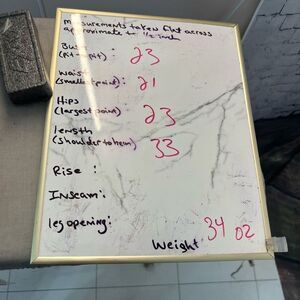 measurements taken flat across
approximate to 1/2 inch
Bust : 23
(Pit - Pit)
Waist : 21
(smallest point)
Hips 23
(largest point)
length 33
(shoulder to hem)
Rise :
Inseam :
leg opening :
Weight 34 oz